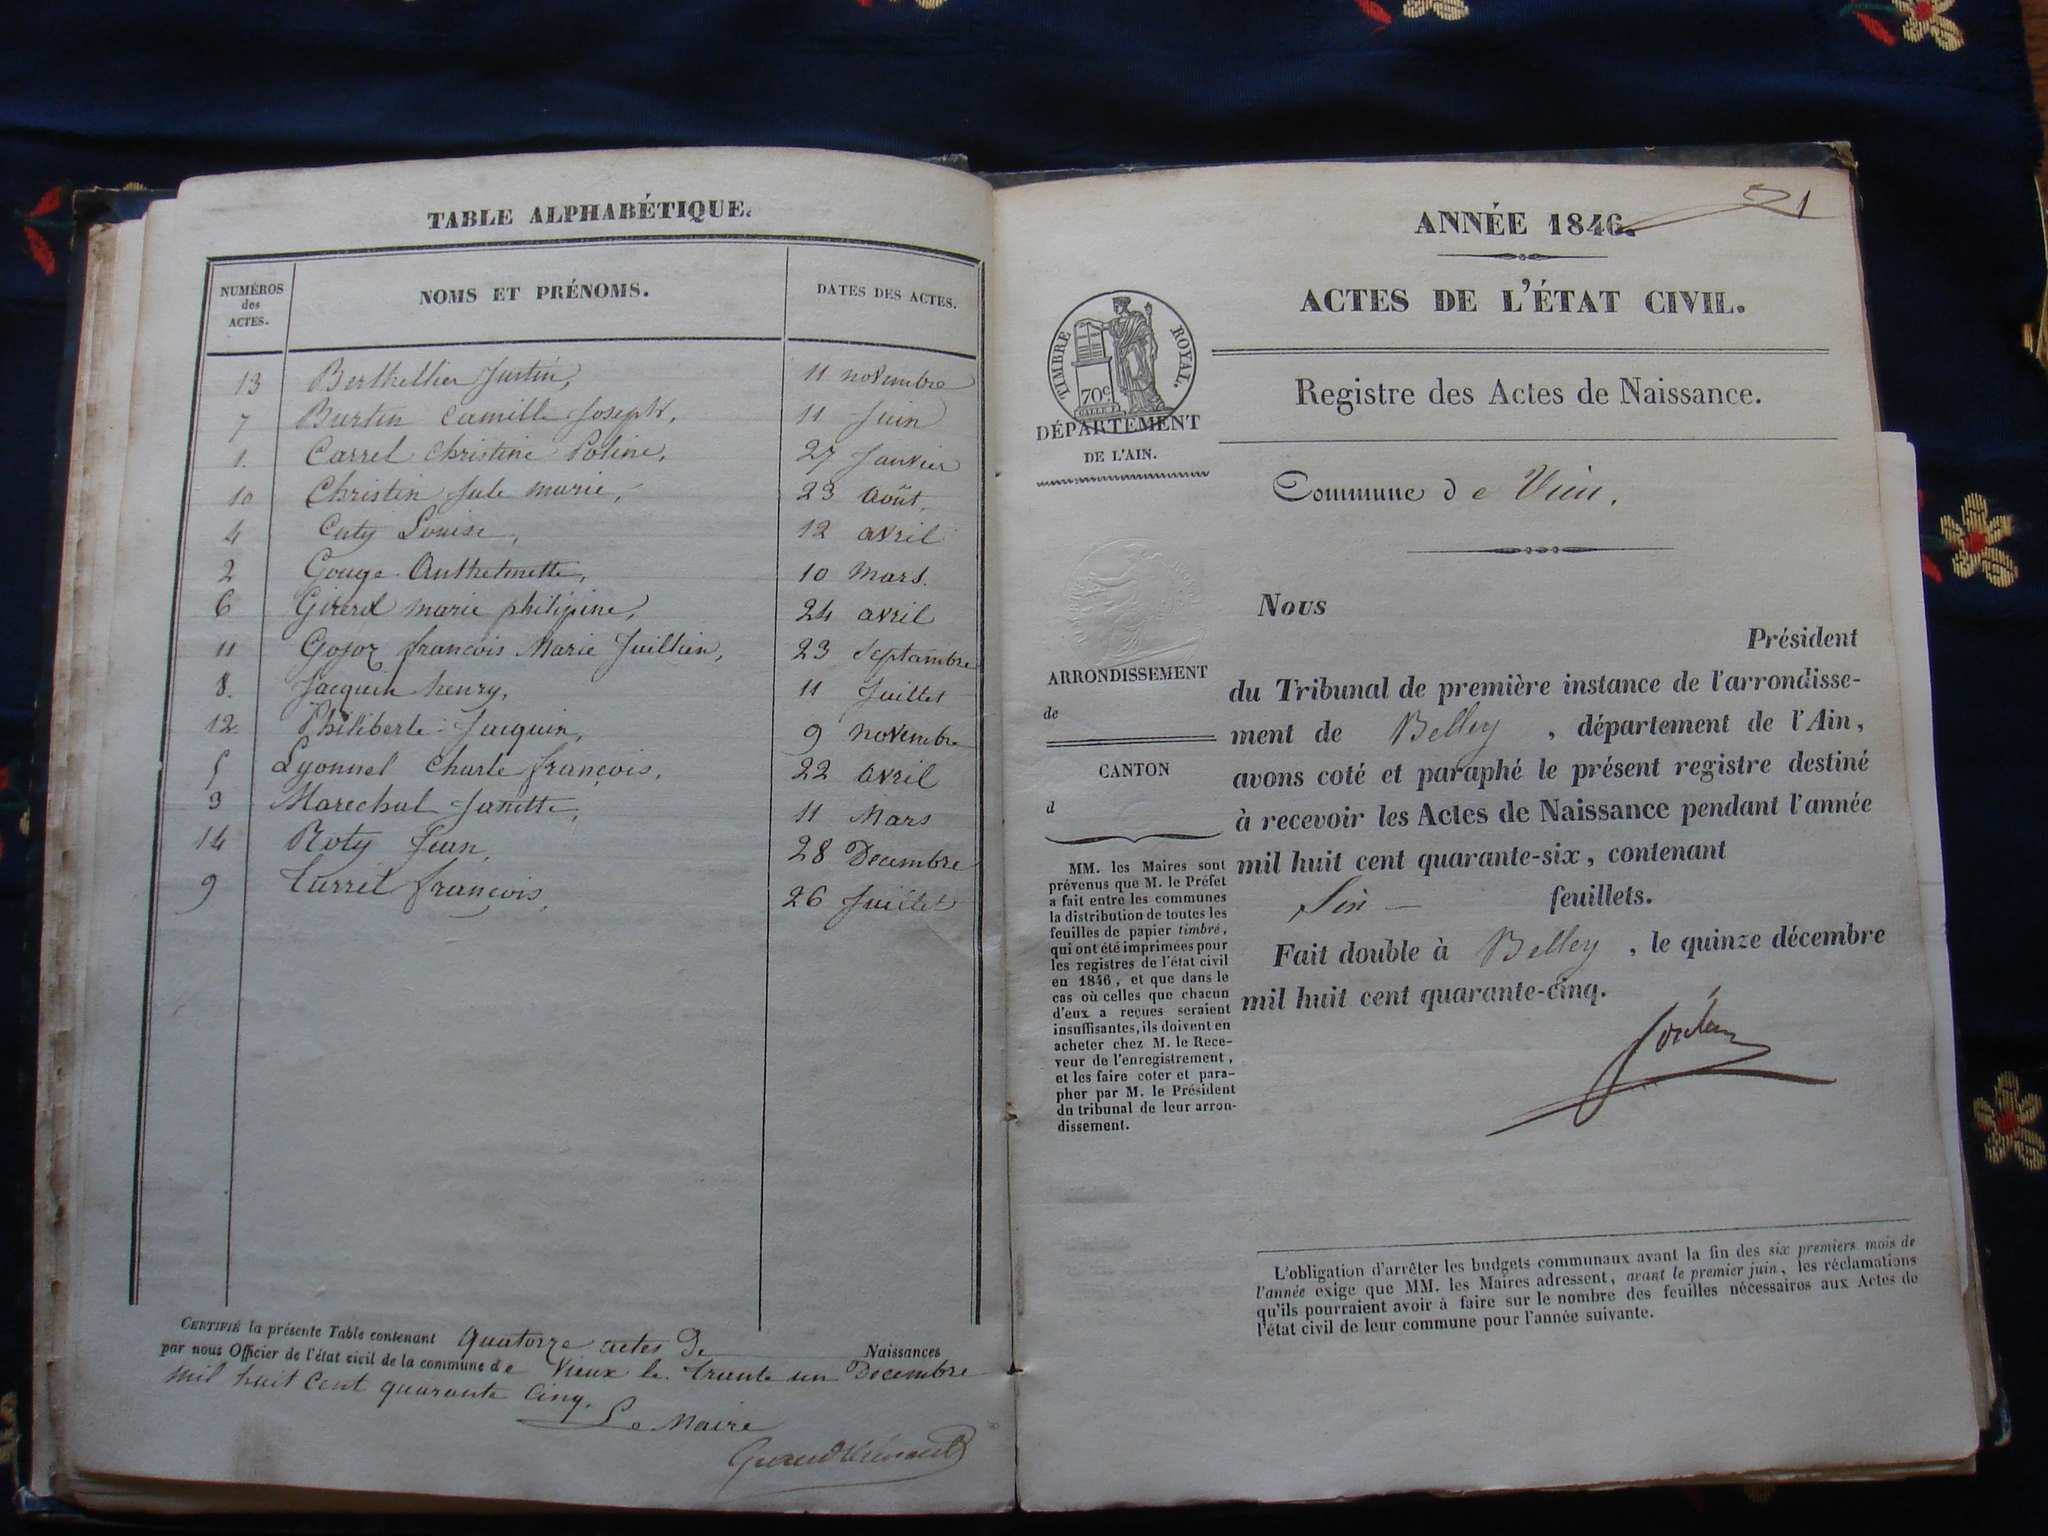 TABLE ALPHABÉTIQUE.
NUMÉROS des ACTES.
NOMS ET PRÉNOMS.
DATES DES ACTES.
13 Berthellier Justin, 11 novembre
7 Burtin Camille Joseph, 11 Juin
1. Carrel Christine Poline, 27 Janvier
10 Christin Jule marie, 23 Août,
4 Cuty Louise, 12 avril
2 Gouge Anthelmette, 10 Mars.
6 Girerd marie philipine, 24 avril
11 Gojoz francois Marie Juillien, 23 Septambre
8. Jacquin henry, 11 Juillet
12 Philiberte Jacquin, 9 novembre
5 Lyonnel Charle françois, 22 avril
3 Marechal Janette, 11 Mars
14 Roty Jean, 28 Decembre
9 turrel françois, 26 Juillet
CERTIFIÉ la présente Table contenant Quatorze actes De Naissances
par nous Officier de l'état civil de la commune de Vieux le trante un Decembre
mil huit cent quarante cinq.
Le Maire
ANNÉE 1846.
1
ACTES DE L'ÉTAT CIVIL.
TIMBRE ROYAL.
70c
Registre des Actes de Naissance.
DÉPARTEMENT
DE L'AIN.
Commune de Vieu.
Nous
Président
ARRONDISSEMENT
de
CANTON
d
du Tribunal de première instance de l'arrondisse-
ment de Belley, département de l'Ain,
avons coté et paraphé le présent registre destiné
à recevoir les Actes de Naissance pendant l'année
mil huit cent quarante-six, contenant
Six feuillets.
Fait double à Belley, le quinze décembre
mil huit cent quarante-cinq.
MM. les Maires sont
prévenus que M. le Préfet
a fait entre les communes
la distribution de toutes les
feuilles de papier timbré,
qui ont été imprimées pour
les registres de l'état civil
en 1846, et que dans le
cas où celles que chacun
d'eux a reçues seraient
insuffisantes, ils doivent en
acheter chez M. le Rece-
veur de l'enregistrement,
et les faire coter et para-
pher par M. le Président
du tribunal de leur arron-
dissement.
L'obligation d'arrêter les budgets communaux avant la fin des six premiers mois de
l'année exige que MM. les Maires adressent, avant le premier juin, les réclamations
qu'ils pourraient avoir à faire sur le nombre des feuilles nécessaires aux Actes de
l'état civil de leur commune pour l'année suivante.